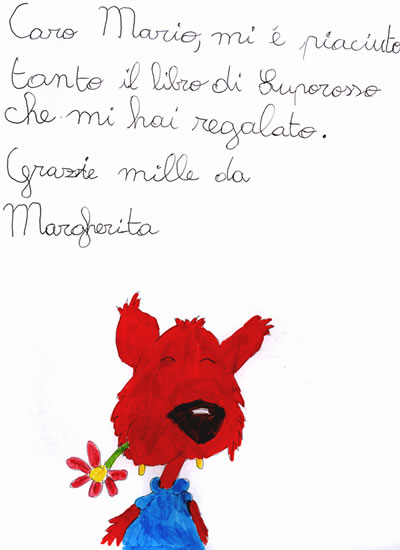 Caro Mario, mi é piaciuto
tanto il libro di Luporosso
che mi hai regalato.
Grazie mille da
Margherita